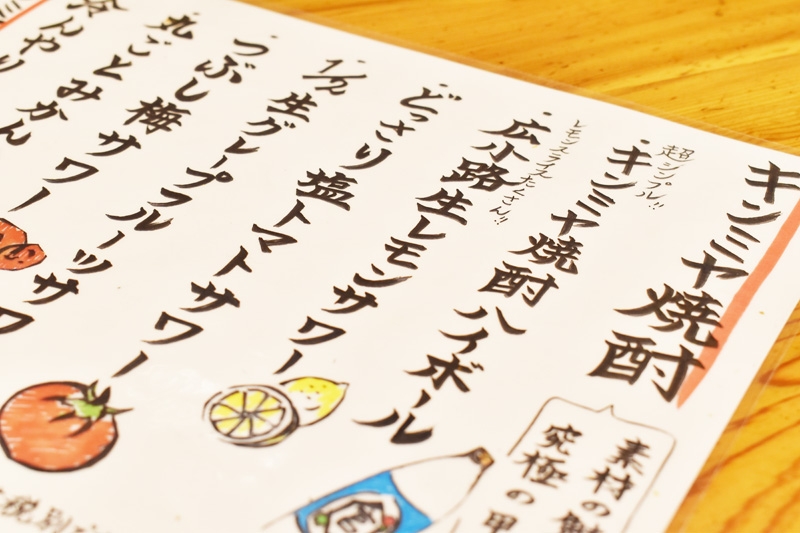 キンミヤ焼酎
超シンプル!!
・キンミヤ焼酎ハイボール
レモンスライスたくさん!!
・広小路生レモンサワー
・どっさり塩トマトサワー
・1/2生グレープフルーツサワ
・つぶし梅サワー
・丸ごとみかん
冷んやり
素材の
究極の
税別